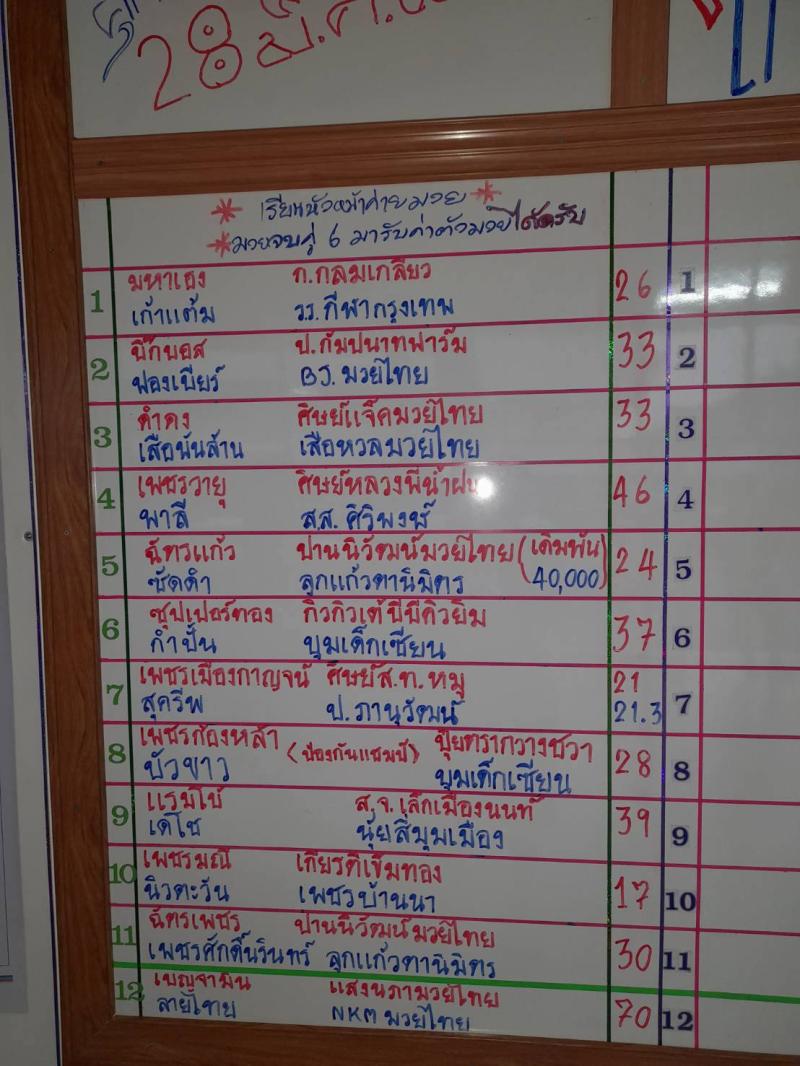 28 มี.ค.
* เรียนหัวหน้าค่ายมวย *
* มวยจบคู่ 6 มารับค่าตัวมวยได้ครับ
1 มหาเฮง ก.กลมเกลียว 26 1
เก้าแต้ม รร.กีฬากรุงเทพ
2 บิ๊กบอส ป.กัมปนาทฟาร์ม 33 2
ฟองเบียร์ BJ.มวยไทย
3 ดำดง ศิษย์แจ็คมวยไทย 33 3
เสือพันล้าน เสือหวลมวยไทย
4 เพชรวายุ ศิษย์หลวงพี่น้ำฝน 46 4
พาลี ส.ส.ศิวิพงษ์
5 ฉัตรแก้ว ปานนิวัฒน์มวยไทย (เดิมพัน 24 5
ซัดดำ ลูกแก้วตานิมิตร 40,000)
6 ซุปเปอร์ทอง กิวกิวเต้บีบีคิวยิม 37 6
กำปั้น บูมเด็กเซียน
7 เพชรเมืองกาญจน์ ศิษย์ส.ท.หมู 21 7
สุครีพ ป.ภานุวัฒน์ 21.3
8 เพชรก้องหล้า (ป้องกันแชมป์) ปุ๋ยตรากวางชวา 28 8
บัวขาว บูมเด็กเซียน
9 แรมโบ้ ส.จ.เล็กเมืองนนท์ 39 9
เดโช นุ้ยสี่มุมเมือง
10 เพชรมณี เกียรติเข็มทอง 17 10
นิวตะวัน เพชรบ้านนา
11 ฉัตรเพชร ปานนิวัฒน์มวยไทย 30 11
เพชรศักดิ์นรินทร์ ลูกแก้วตานิมิตร
12 เบญจามิน แสงนภามวยไทย 70 12
สายไทย NKM มวยไทย